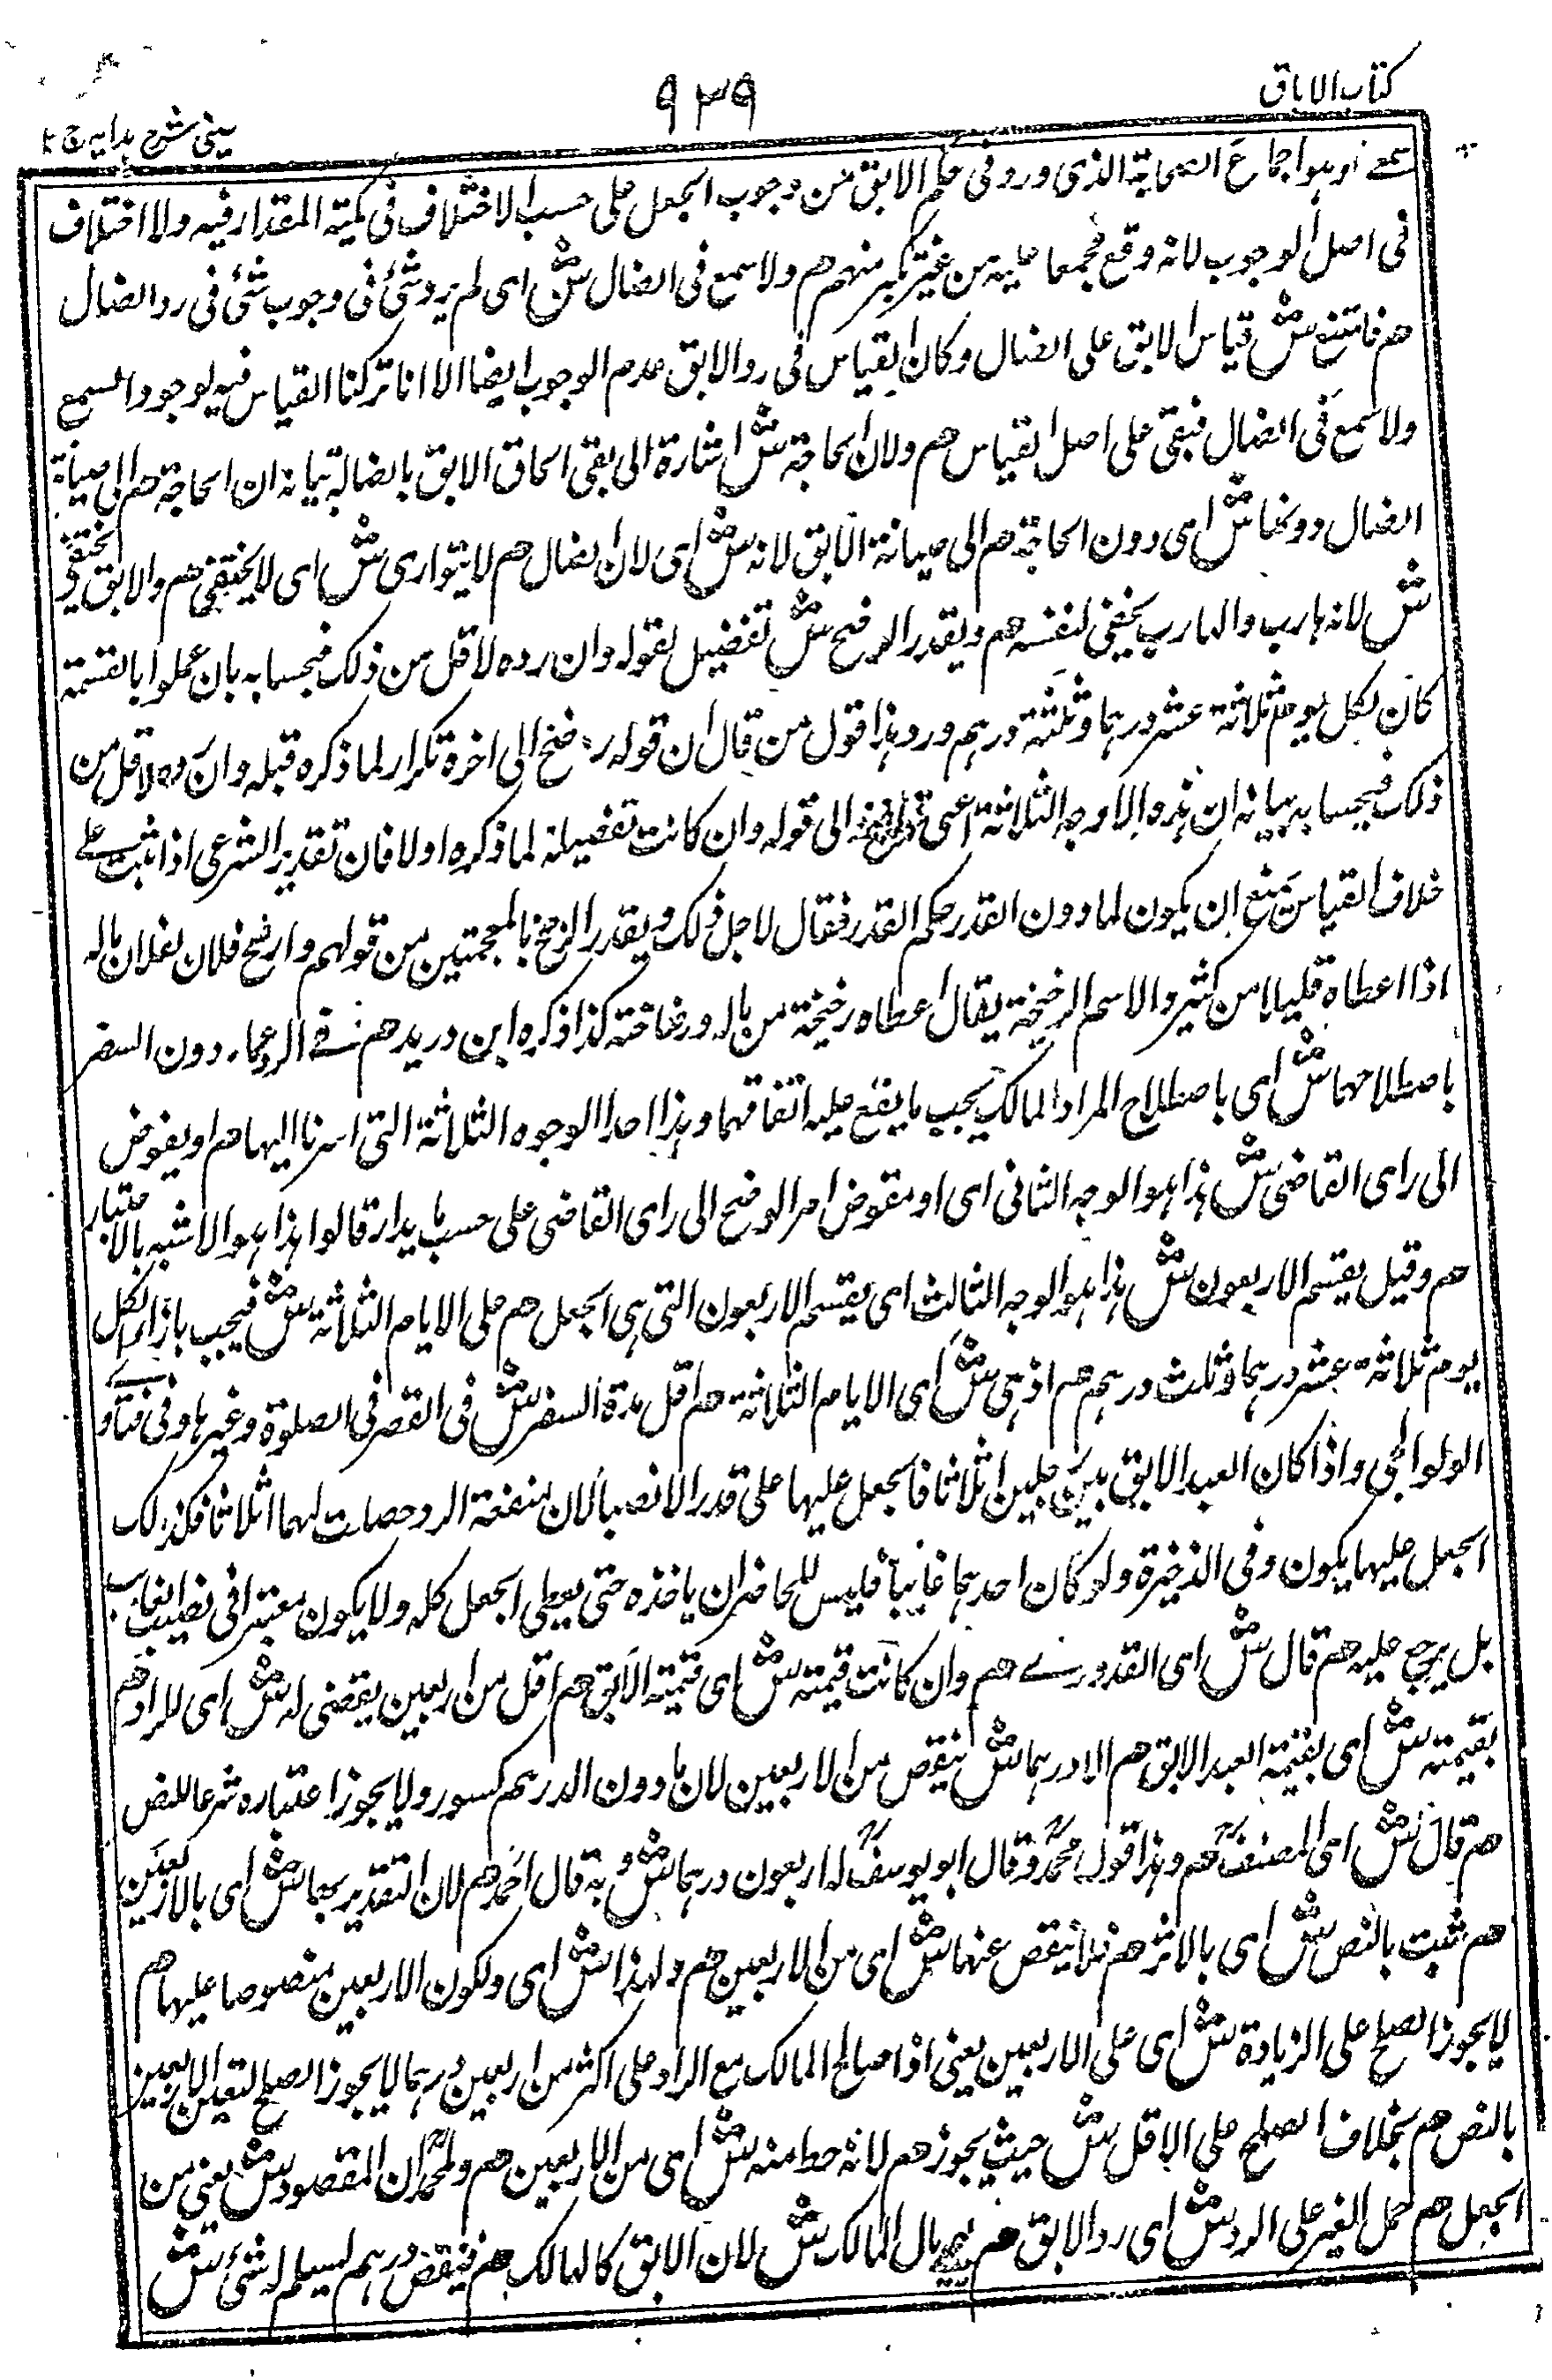 كتاب الاباق
٩٣٩
عينى شرح هدايه ج ٢
سمع وهو اجماع الصحابة الذى ورد فى حكم الابق من وجوب الجعل على حسب الاختلاف فى كمية المقدار فيه ولا اختلاف
فى اصل الوجوب لانه وقع مجمعا عليه من غير نكير منهم هم ولا سمع فى الضال ش اى لم يرد شئ فى وجوب شئ فى رد الضال
هم فامتنع ش قياس الابق على الضال وكان القياس فى رد الابق عدم الوجوب ايضا الا انا تركنا القياس فيه لوجود السمع
ولا سمع فى الضال فبقى على اصل القياس هم ولان الحاجة ش اشارة الى نفى الحاق الابق بالضال بيانه ان الحاجة هم الى صيانة
الضال دونها ش اى دون الحاجة هم الى صيانة الابق لانه ش اى لان الضال هم لا يتوارى ش اى لا يختفى هم والابق يختفى
ش لانه هارب والهارب يخفى لنفسه هم ويقدر الرضخ ش تفضيل لقوله وان رده لاقل من ذلك فبحسابه بان عملوا بالقسمة
كان لكل يوم ثلاثة عشر درهما وثلثة درهم ورد هذا قول من قال ان قوله رضخ الى اخره تكرار لما ذكره قبله وان رده لاقل من
ذلك فبحسابه بيانه ان هذه الاوجه الثلاثة اعنى الى قوله وان كانت تفصيلة لما ذكره اولا فان تقدير الشرعى اذا ثبت على
خلاف القياس يمنع ان يكون لما دون القدر حكم القدر فقال لاجل ذلك ويقدر الرضخ بالمعجمتين من قولهم وارضخ فلان لفلان باله
اذا اعطاه قليلا من كثير والاسم الرضيخة يقال اعطاه رضيخة من باله ورضاخته كذا ذكره ابن دريد هم فى الرد عما دون السفر
باصطلاحهما ش اى باصطلاح المراد المالك يجب ما يقع عليه اتفاقهما وهذا احد الوجوه الثلاثة التى اسرنا اليها هم او يفوض
الى راى القاضى ش هذا هو الوجه الثانى اى او مفوض امر الوضخ الى راى القاضى على حسب ما يراه قالوا هذا هو الاشبه بالاعتبار
هم وقيل يقسم الاربعون ش هذا هو الوجه الثالث اى يقسم الاربعون التى هى الجعل هم على الايام الثلاثة ش فيجب بازاء لكل
يوم ثلاثة عشر درهما وثلث درهم هم اذ هى ش اى الايام الثلاثة هم اقل مدة السفر ش فى القصر فى الصلوة وغيرها وفى فتاوى
الولوالجى واذا كان العبد الابق بين رجلين اثلاثا فالجعل عليها على قدر الانصباء لان منفعة الرد حصلت لهما اثلاثا فكذلك
الجعل عليها يكون وفى الذخيرة ولو كان احدهما غائبا فليس للحاضر ان ياخذه حتى يعطى الجعل كله ولا يكون معتبرا فى نصيب الغائب
بل يرجع عليه هم قال ش اى القدورى هم وان كانت قيمته ش اى قيمة الابق هم اقل من اربعين يقضى له ش اى للراد هم
بقيمته ش اى بقيمة العبد الابق هم الا درهما ش ينقص من الاربعين لان ما دون الدرهم كسور ولا يجوز اعتباره شرعا للنص
هم قال ش اى المصنف هم وهذا قول محمد وقال ابو يوسف له اربعون درهما ش وبه قال احمد هم لان التقدير بها ش اى بالاربعين
هم ثبت بالنص ش اى بالاثر هم فلا ينقص عنها ش اى من الاربعين هم ولهذا ش اى ولكون الاربعين منصوصا عليها هم
لا يجوز الصلح على الزيادة ش اى على الاربعين يعنى اذا صالح المالك مع الراد على اكثر من اربعين درهما لا يجوز الصلح لتعين الاربعين
بالنص هم بخلاف الصلح على الاقل ش حيث يجوز هم لانه حط منه ش اى من الاربعين هم ولمحمد ان المقصود ش يعنى من
الجعل هم حمل الغير على الرد ش اى رد الابق هم مال المالك ش لان الابق كالهالك هم فينقص درهم ليسلم له شئ ش